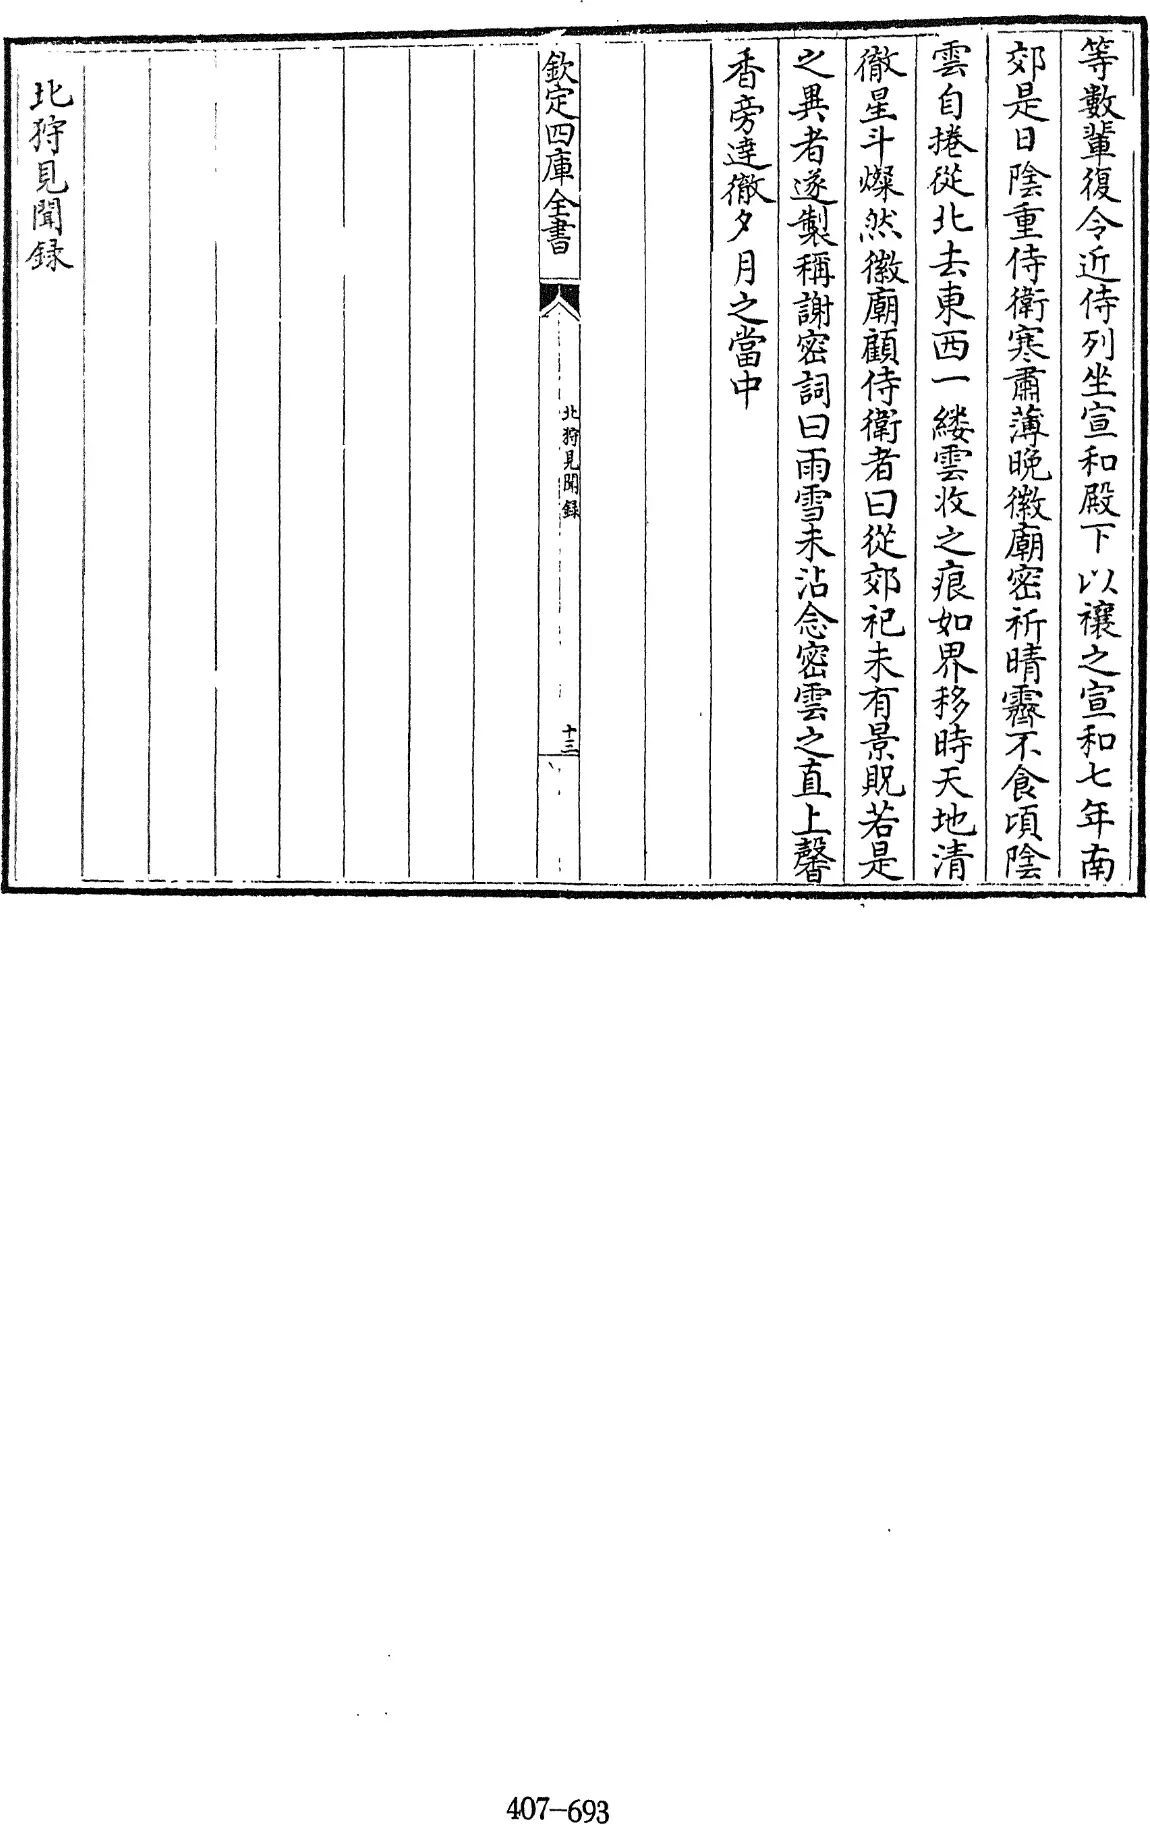 等數輩復令近侍列坐宣和殿下以禳之宣和七年南
郊是日陰重侍衛寒肅薄晚徽廟密祈晴霽不食頃陰
雲自捲從北去東西一縷雲收之痕如界移時天地清
徹星斗燦然徽廟顧侍衛者曰從郊祀未有景貺若是
之異者遂製稱謝密詞曰雨雪未沾念密雲之直上馨
香旁達徹夕月之當中
欽定四庫全書
北狩見聞錄
十三
北狩見聞録
407-693